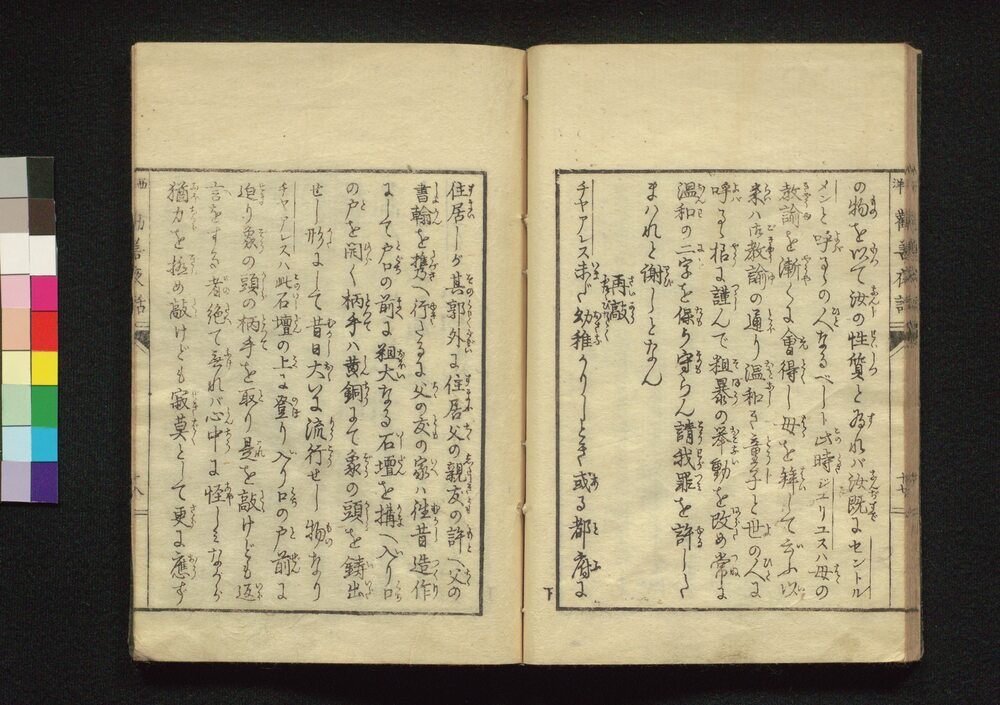 の物を以て汝の性質と為れバ汝既にセントル
メンと呼るゝの人なるべしト此時ジユリユスハ母の
教諭を漸くに會得し母を拜して云ふ以
来ハ御教諭の通り温和き童子と世の人に
呼るゝ㨾に謹んで粗暴の挙動を改め常に
温和の二字を保り守らん請我罪を許した
まハれと謝しとなん
再敲
チヤアレス未だ幼稚かりしとき或る都府に
住居しが其郭外に住居父の親友の許へ父の
書翰を携へ行たるに父の友の家ハ往昔造作
にして戸口の前に粗大なる石壇を搆へ入り口
の戸を開く柄手ハ黄銅にて象の頭を鋳出
せし形にして昔日大いに流行せし物なり
チヤアレスハ此石壇の上に登り入り口の戸前に
迫り象の頭の柄手を取り是を敲けども返
言をする者絶て無れバ心中に怪しミながら
猶力を極め敲けども寂莫として更に應ず
洋
勸善夜話
十七
下
西
勸善夜話
十八